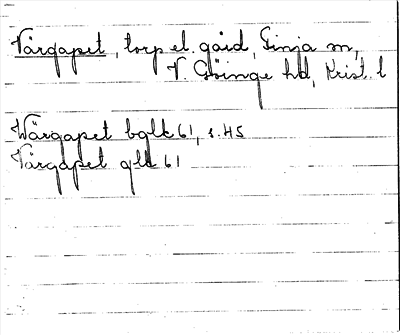 Värgapet, torp el. gård, Sinja sn,
V. Göinge hd, Krist. l
Wärgapet bglk 61, s. 45
Värgapet glk 61